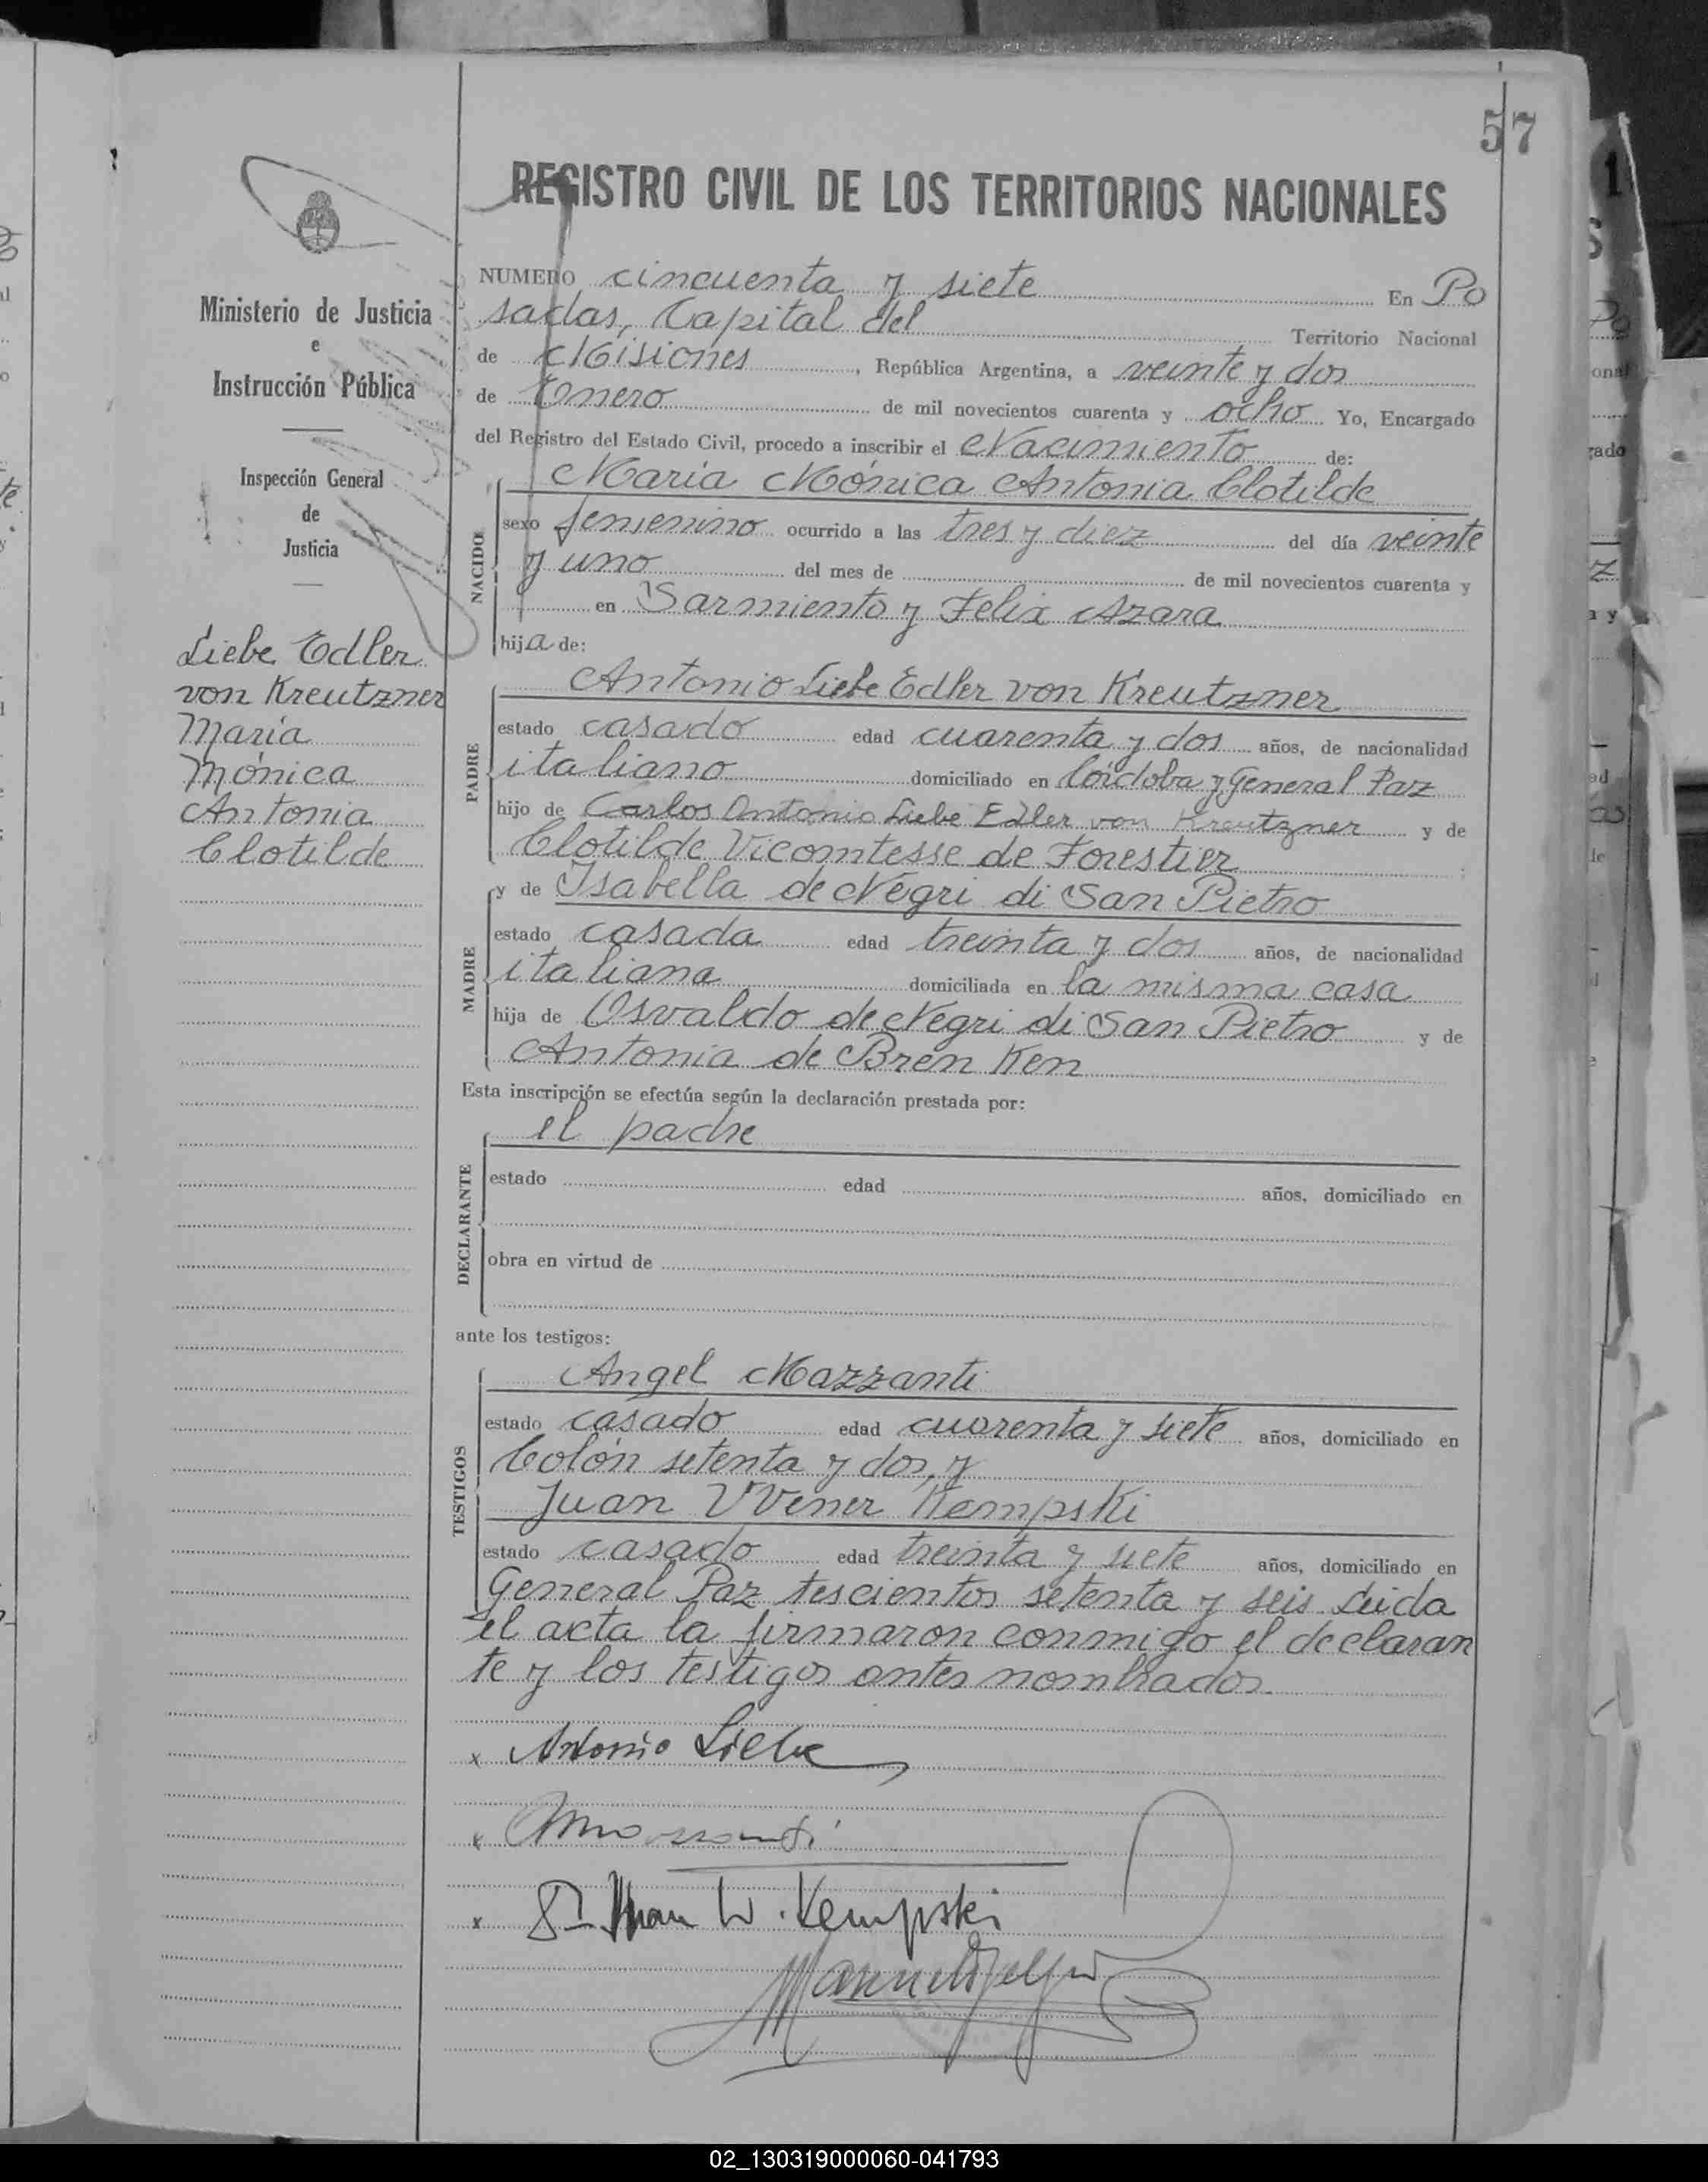 57
REGISTRO CIVIL DE LOS TERRITORIOS NACIONALES
Ministerio de Justicia
e
Instrucción Pública
Inspección General
de
Justicia
Liebe Edler
von Kreutzner
Maria
Mónica
Antonia
Clotilde
NUMERO cincuenta y siete En Po
sadas, Capital del Territorio Nacional
de Misiones, República Argentina, a veinte y dos
de Enero de mil novecientos cuarenta y ocho Yo, Encargado
del Registro del Estado Civil, procedo a inscribir el Nacimiento de:
Maria Mónica Antonia Clotilde
NACIDO
sexo femenino ocurrido a las tres y diez del día veinte
y uno del mes de de mil novecientos cuarenta y
en Sarmiento y Felix Azara
hija de:
Antonio Liebe Edler von Kreutzner
PADRE
estado casado edad cuarenta y dos años, de nacionalidad
italiano domiciliado en Córdoba y General Paz
hijo de Carlos Antonio Liebe Edler von Kreutzner y de
Clotilde Vicomtesse de Forestier
y de Isabella de Negri di San Pietro
MADRE
estado casada edad treinta y dos años, de nacionalidad
italiana domiciliada en la misma casa
hija de Osvaldo de Negri di San Pietro y de
Antonia de Bren Ken
Esta inscripción se efectúa según la declaración prestada por:
el padre
DECLARANTE
estado edad años, domiciliado en
obra en virtud de
ante los testigos:
Angel Mazzanti
TESTIGOS
estado casado edad cuarenta y siete años, domiciliado en
Colón setenta y dos, y
Juan VVener Kempski
estado casado edad treinta y siete años, domiciliado en
General Paz tescientos setenta y seis Leida
el acta la firmaron conmigo el declaran
te y los testigos antes nombrados
x Antonio Liebe
x
x Juan W. Kempski
02_130319000060-041793